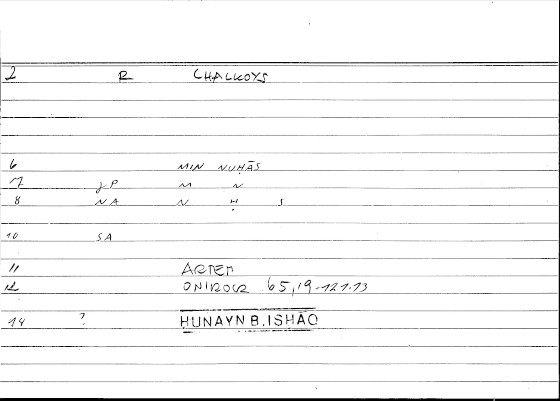 2 R CHALKOYS
6 MIN NUḤĀS
7 JP M N
8 NA N Ḥ S
10 SA
11 ARTEM
12 ONIROCR 65,19-121.13
14 ? ḤUNAYN B. ISḤĀQ